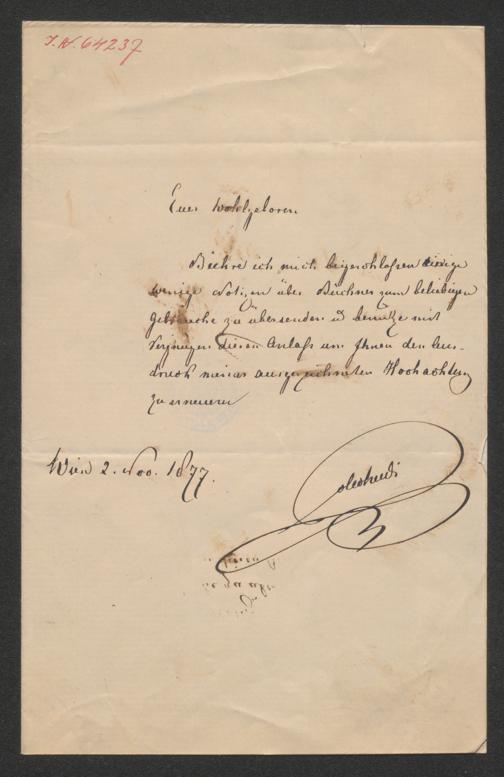 I.N. 64237
Euer Wohlgeboren
Beehre ich mich beigeschlossen einige
wenige Notizen über Büchner zum beliebigen
Gebrauche zu übersenden u benütze mit
Vergnügen diesen Anlaß um Ihnen den Aus-
druck meiner ausgezeichneten Hochachtung
zu erneuern
Wien 2. Nov. 1877.